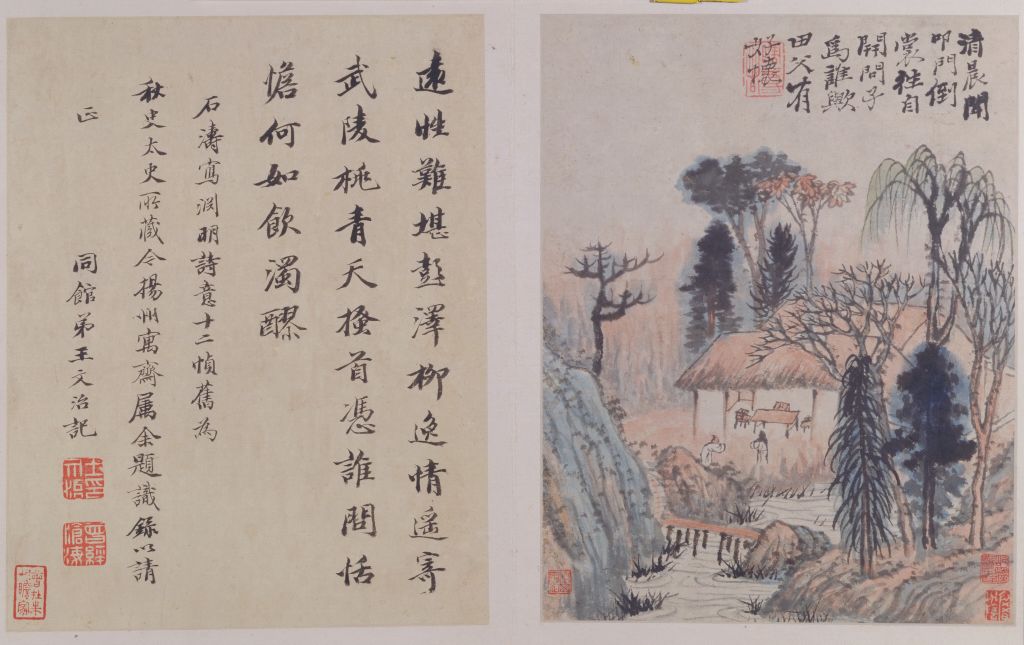 清晨聞
叩門倒
裳往自
開問子
為誰歟
田父有
好懷
遠性難堪彭澤柳逸情遥寄
武陵桃青天搔首憑誰問恬
憺何如飲濁醪
石濤寫渊明詩意十二幀舊為
秋史太史所藏今揚州寓齋属余題識錄以請
正
同館弟王文治記
曾經滄海